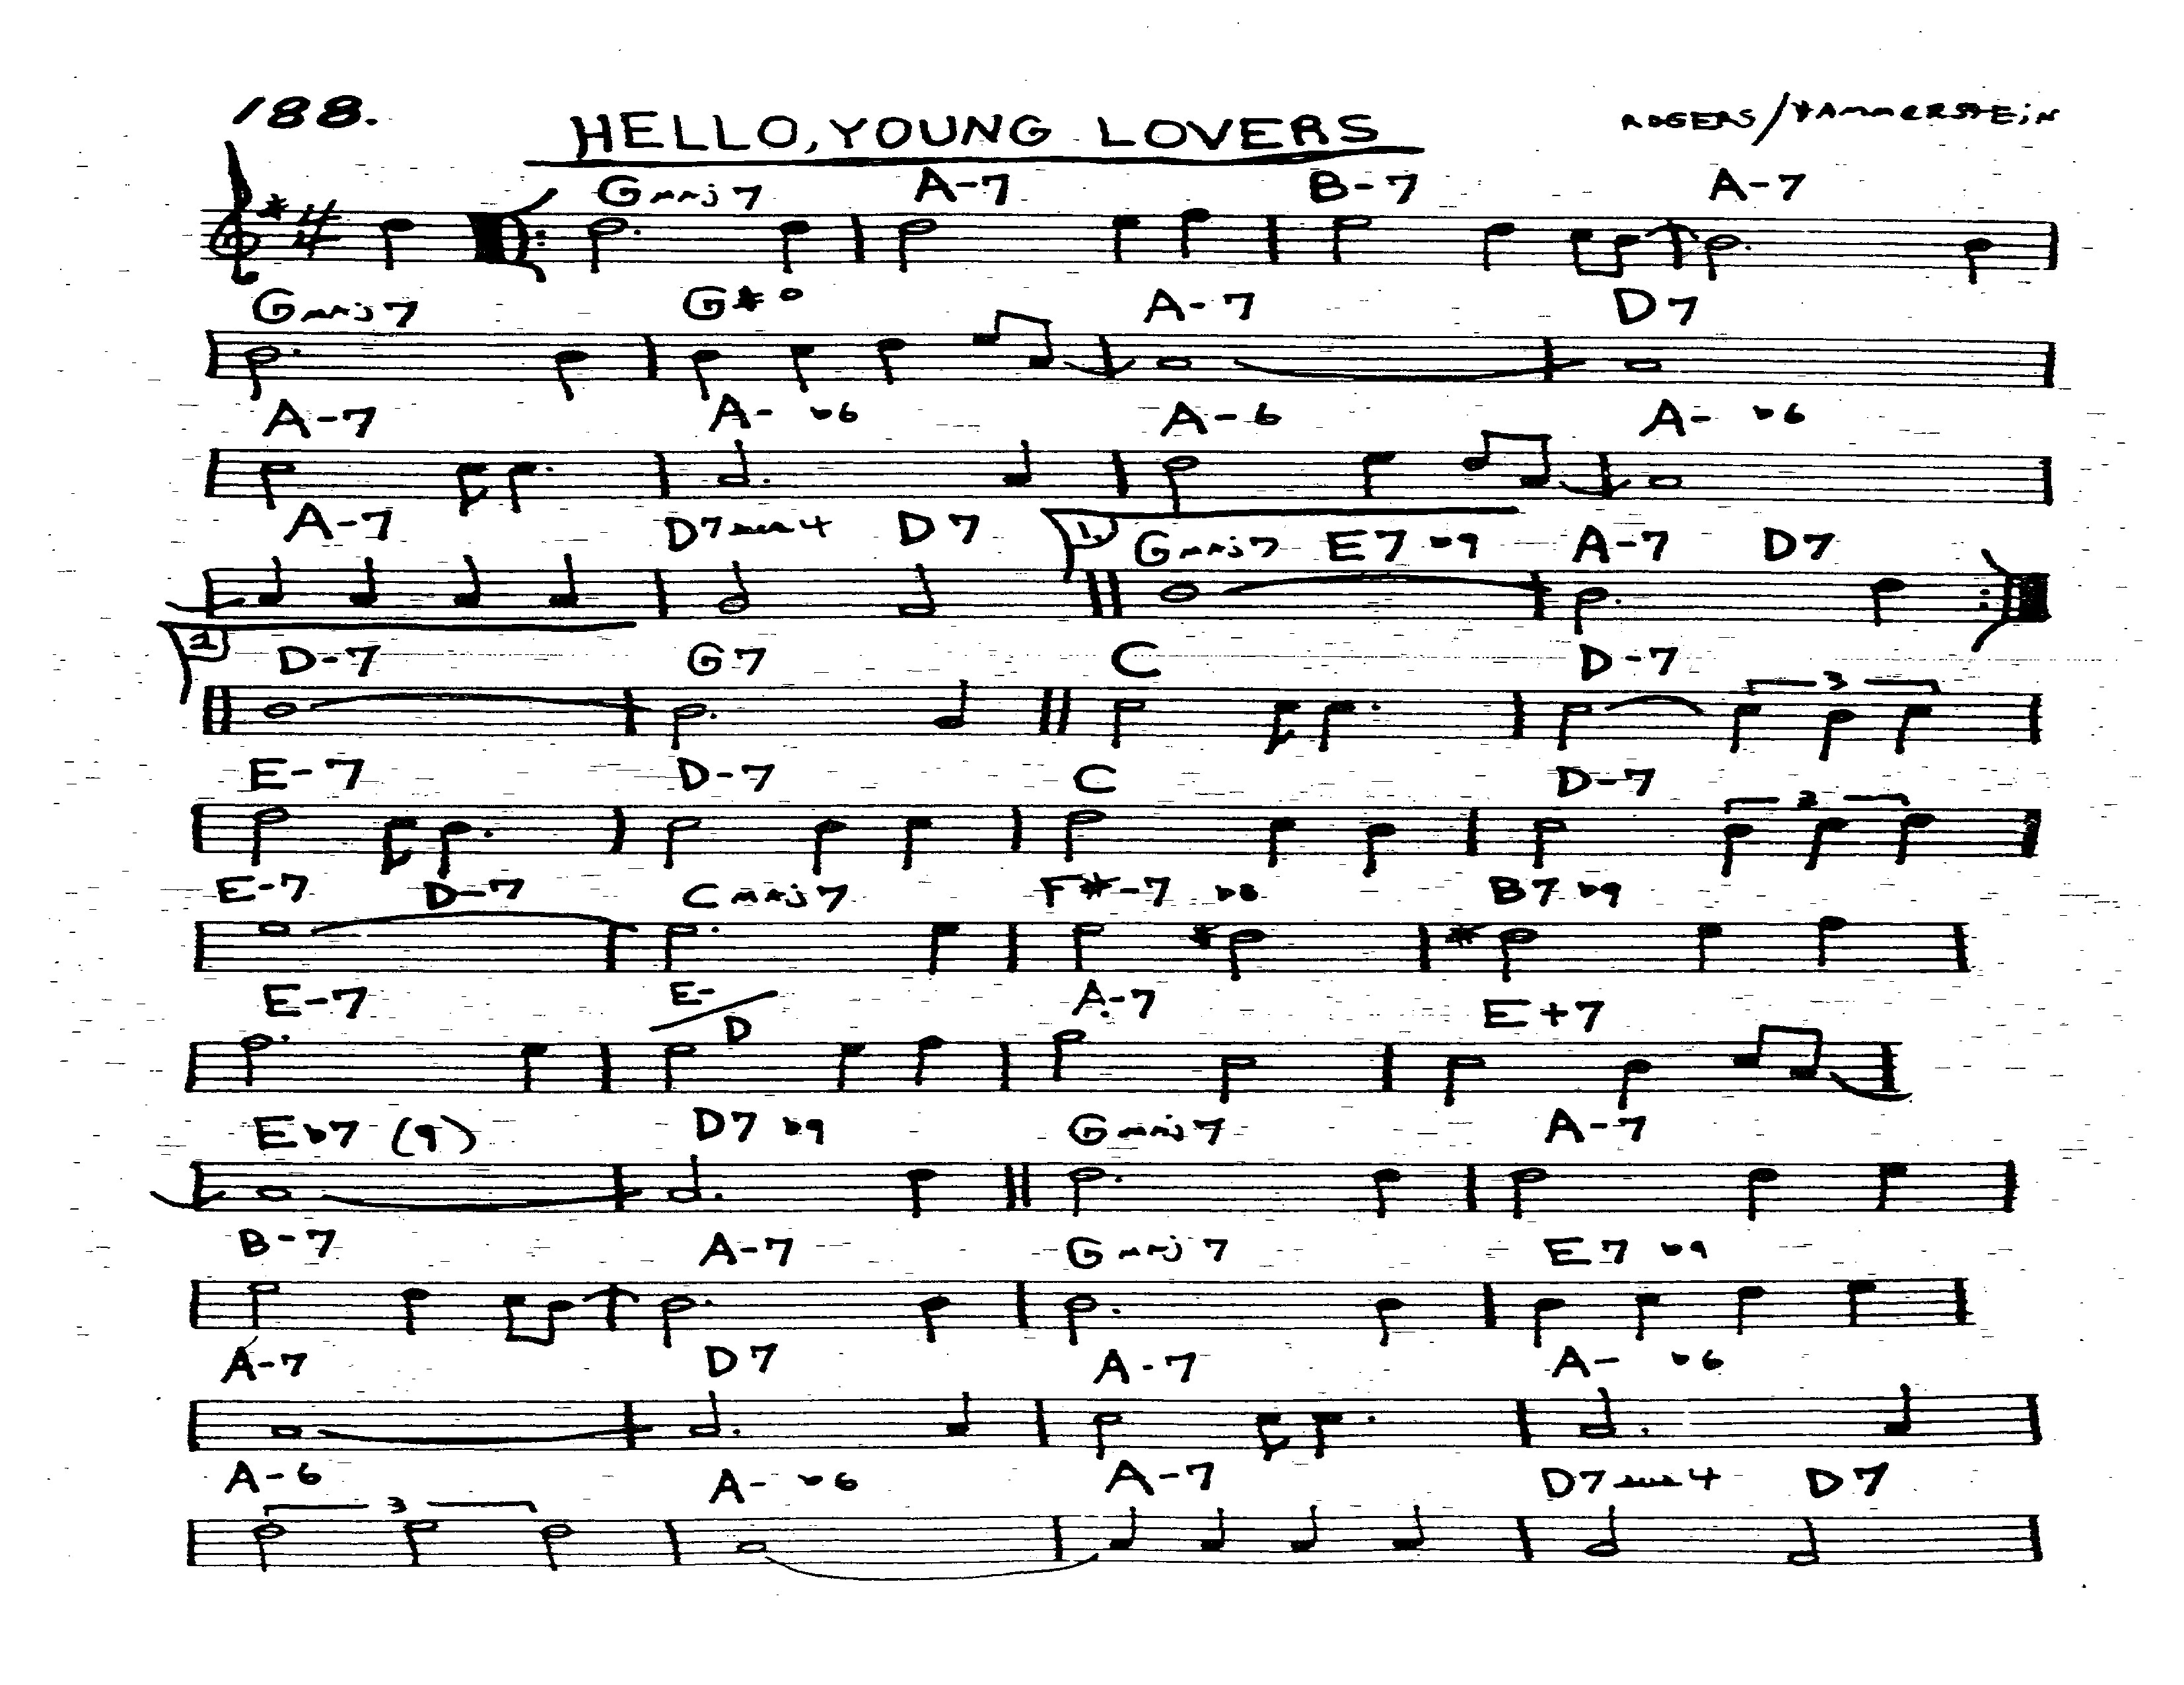 188.
HELLO, YOUNG LOVERS
ROGERS/HAMMERSTEIN
Gmaj7 A-7 B-7 A-7
Gmaj7 G#o A-7 D7
A-7 A- b6 A-6 A- b6
A-7 D7sus4 D7 1. Gmaj7 E7b9 A-7 D7
2 D-7 G7 C D-7 3
E-7 D-7 C D-7 3
E-7 D-7 Cmaj7 F#-7 B7b9
E-7 E-/D A-7 E+7
Eb7 (9) D7 b9 Gmaj7 A-7
B-7 A-7 Gmaj7 E7 b9
A-7 D7 A-7 A- b6
A-6 3 A- b6 A-7 D7sus4 D7